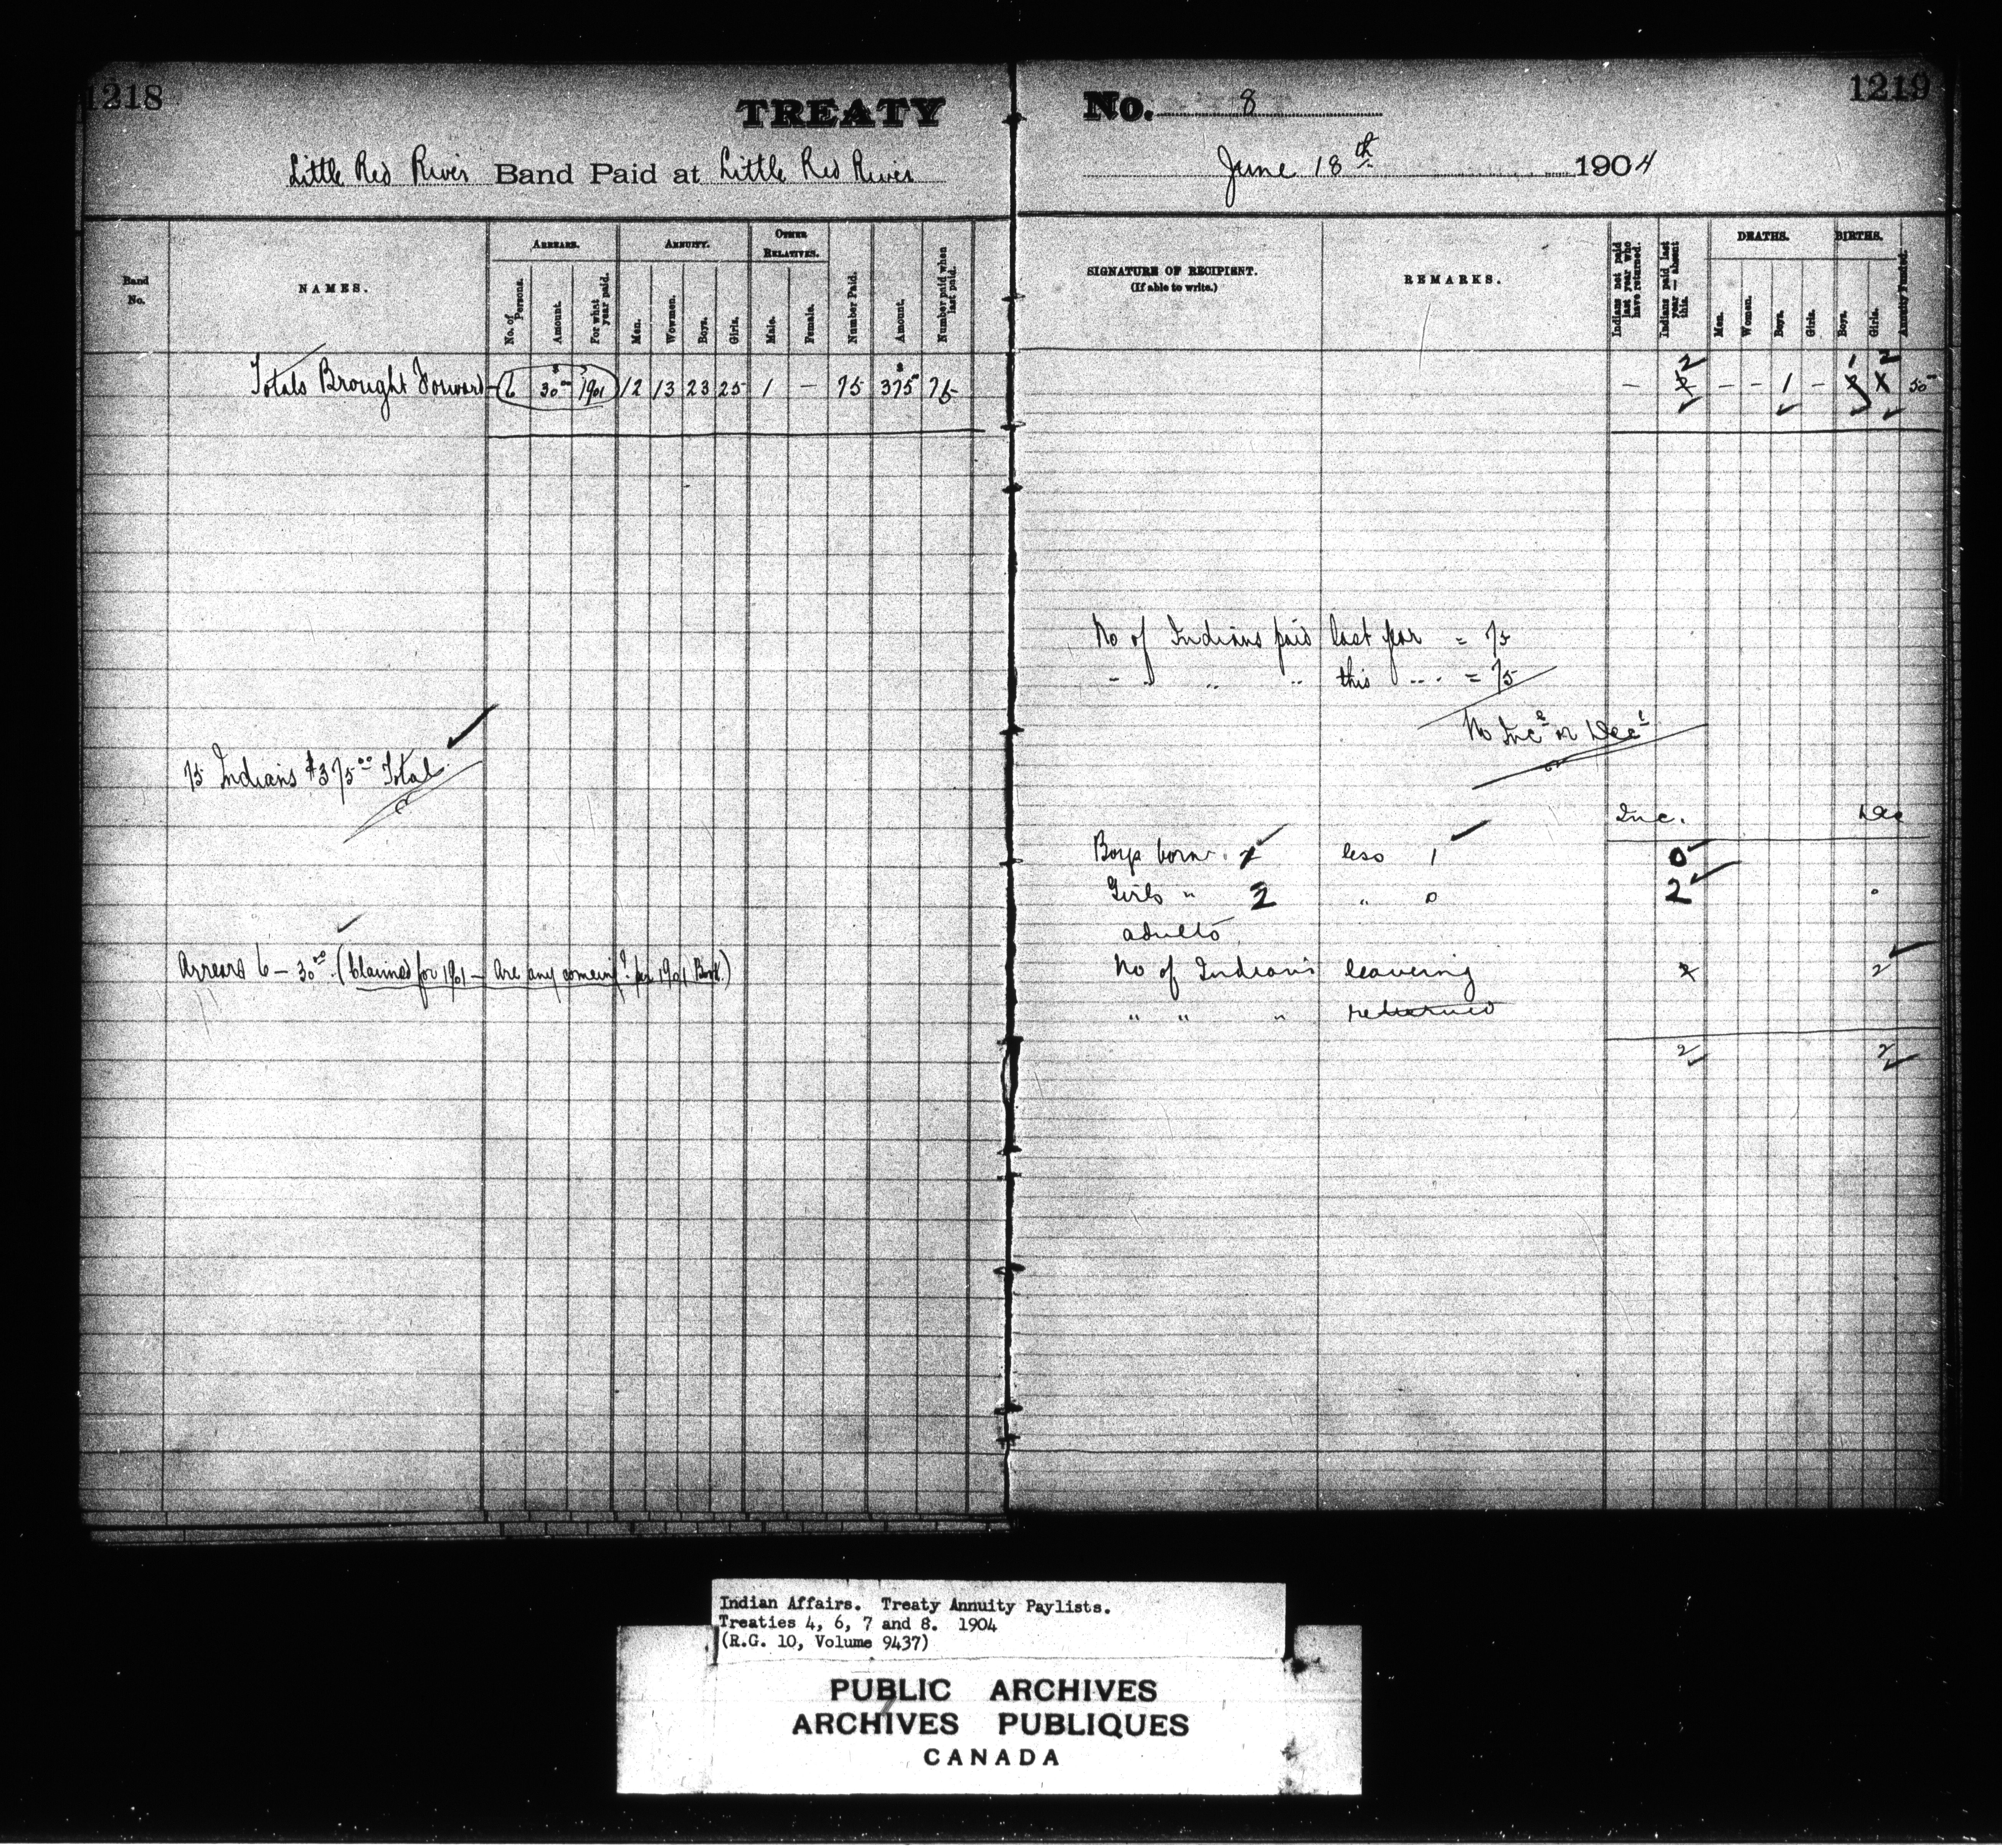 1218
TREATY
Little Red River Band Paid at Little Red River
Band No.
NAMES.
ARREARS.
No. of Persons.
Amount.
For what year paid.
ANNUITY.
Men.
Wowmen.
Boys.
Girls.
OTHER RELATIVES.
Male.
Female.
Number Paid.
Amount.
Number paid when last paid.
Totals Brought Forward 6 $30 00 1901 12 13 23 25 1 — 75 $375 75
75 Indians $375 00 Total
Arrears 6 — 30 00 (Claimed for 1901 — Are any comeing? per 1901 Book.)
1219
No. 8
June 18th 1904
SIGNATURE OF RECIPIENT.
(If able to write.)
REMARKS.
Indians not paid last year who have returned.
Indians paid last year—absent this.
DEATHS.
Men.
Woman.
Boys.
Girls.
BIRTHS.
Boys.
Girls.
Annuity Funded.
— 2 — — 1 — 1 2 50
No of Indians paid last year = 75
" " " " this " = 75
No Inc e or Dec e
Inc. Dec
Boys born less 1 0
Girls " 2 " 0 2 0
adults
No of Indians leaveing 2
" " " returned
2 2
Indian Affairs. Treaty Annuity Paylists.
Treaties 4, 6, 7 and 8. 1904
(R.G. 10, Volume 9437)
PUBLIC ARCHIVES
ARCHIVES PUBLIQUES
CANADA